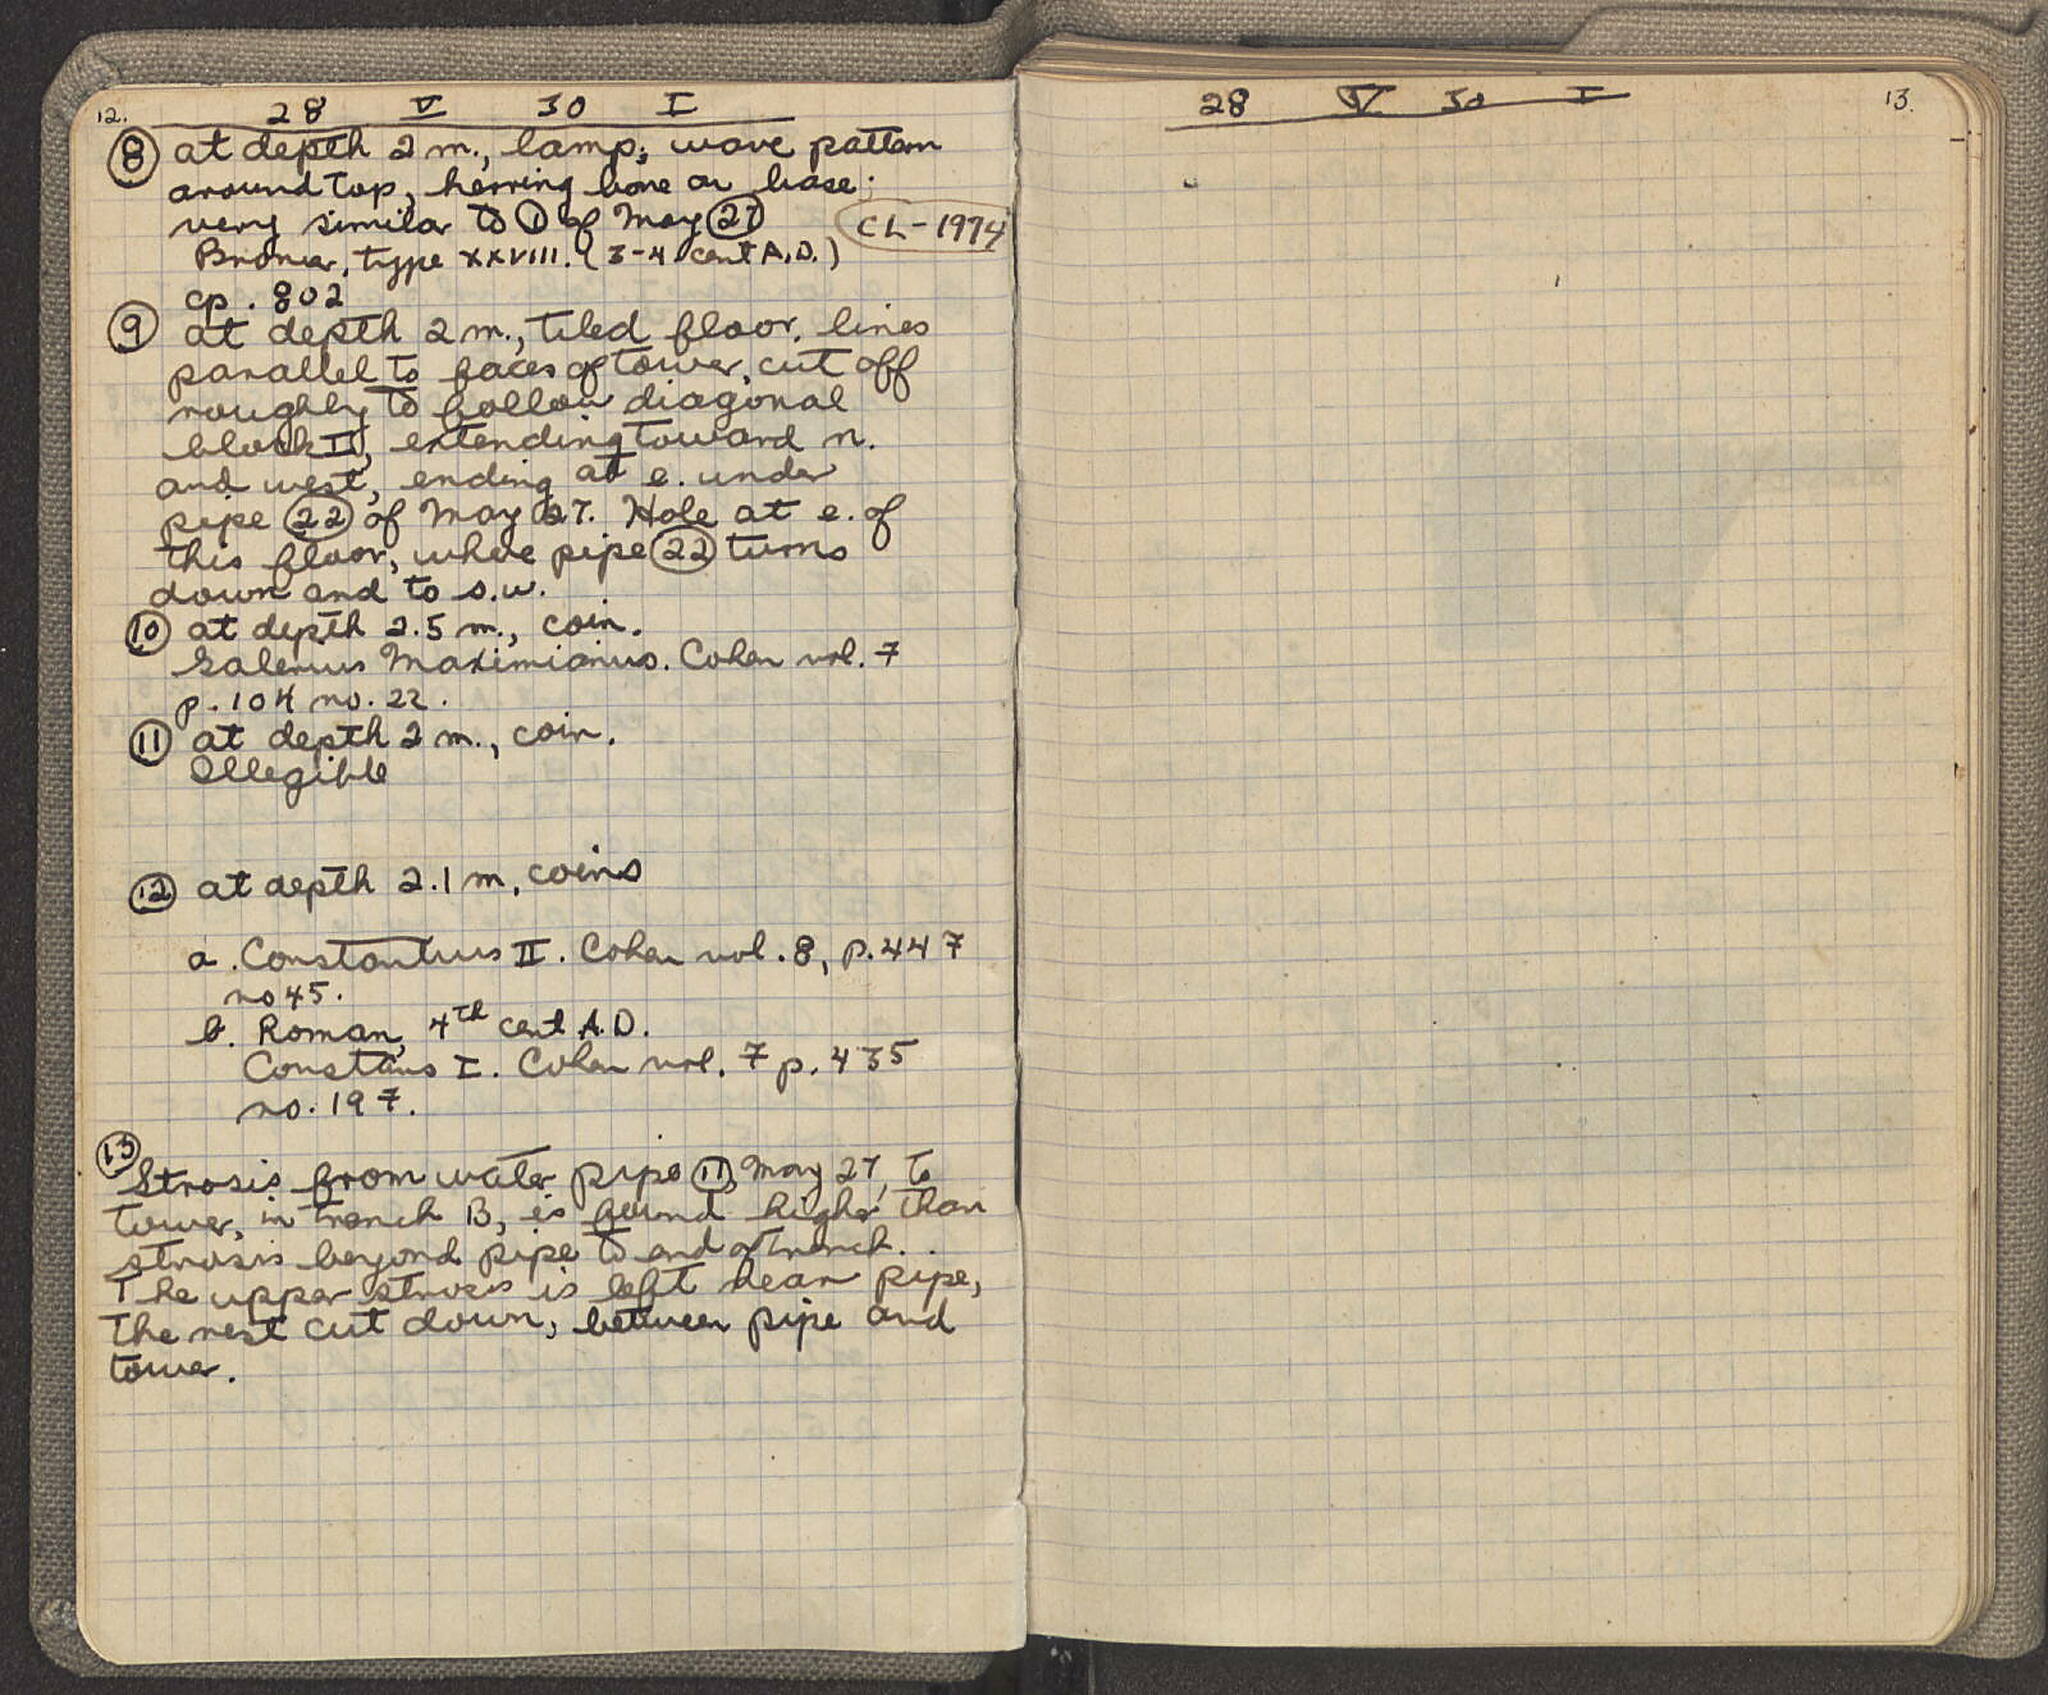 12. 28 V 30 I
⑧ at depth 2 m., lamp; wave pattern
around top, herring bone on base;
very similar to ① of May 27
CL-1974
Broneer, type XXVIII. (3-4 cent A.D.)
cp. 802
⑨ at depth 2 m., tiled floor, lines
parallel to faces of tower, cut off
roughly to follow diagonal
block II, extending toward n.
and west, ending at e. under
pipe ㉒ of May 27. Hole at e. of
this floor, where pipe ㉒ turns
down and to s.w.
⑩ at depth 2.5 m., coin.
Galerius Maximianus. Cohen vol. 7
p. 104 no. 22.
⑪ at depth 2 m., coin.
Illegible
⑫ at depth 2.1 m, coins
a. Constantius II. Cohen vol. 8, p. 447
no 45.
b. Roman, 4th cent A.D.
Constans I. Cohen vol. 7 p. 435
no. 197.
⑬
Strosis from water pipe ⑪, May 27, to
tower, in trench B, is found higher than
strosis beyond pipe to end of trench.
The upper strosis is left near pipe,
the rest cut down, between pipe and
tower.
28 V 30 I 13.